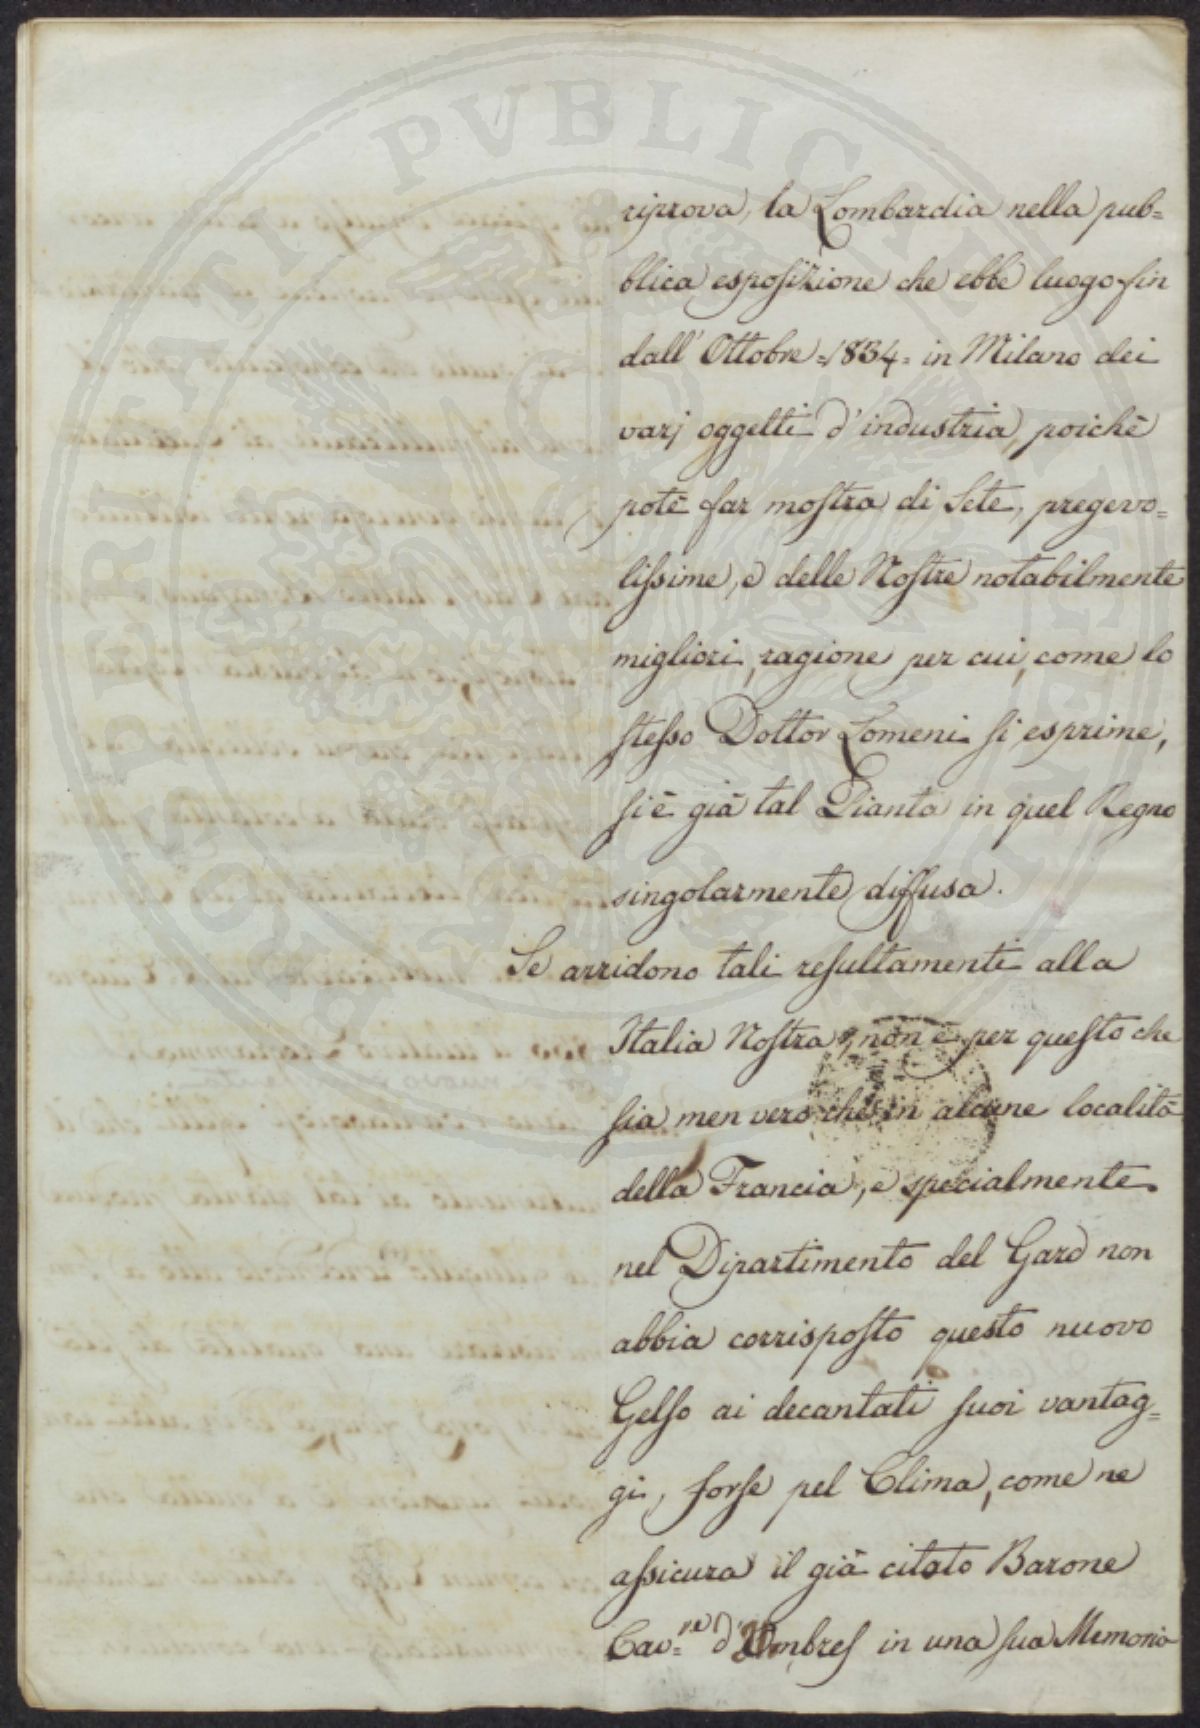 PROSPERITATI PVBLICAE AVGENDAE
riprova, la Lombardia nella pub=
blica esposizione che ebbe luogo fin
dall' Ottobre =1834= in Milano dei
varj oggetti d'industria, poichè
potè far mostra di Sete, pregevo=
lissime, e delle Nostre notabilmente
migliori, ragione per cui, come lo
stesso Dottor Lomeni si esprime,
si è già tal Pianta in quel Regno
singolarmente diffusa.
Se arridono tali resultamenti alla
Italia Nostra, non è per questo che
sia men vero che in alcune località
della Francia, e specialmente
nel Dipartimento del Gard non
abbia corrisposto questo nuovo
Gelso ai decantati suoi vantag=
gi, forse pel Clima, come ne
assicura il già citato Barone
Cav=re d'Ombres in una sua Memoria